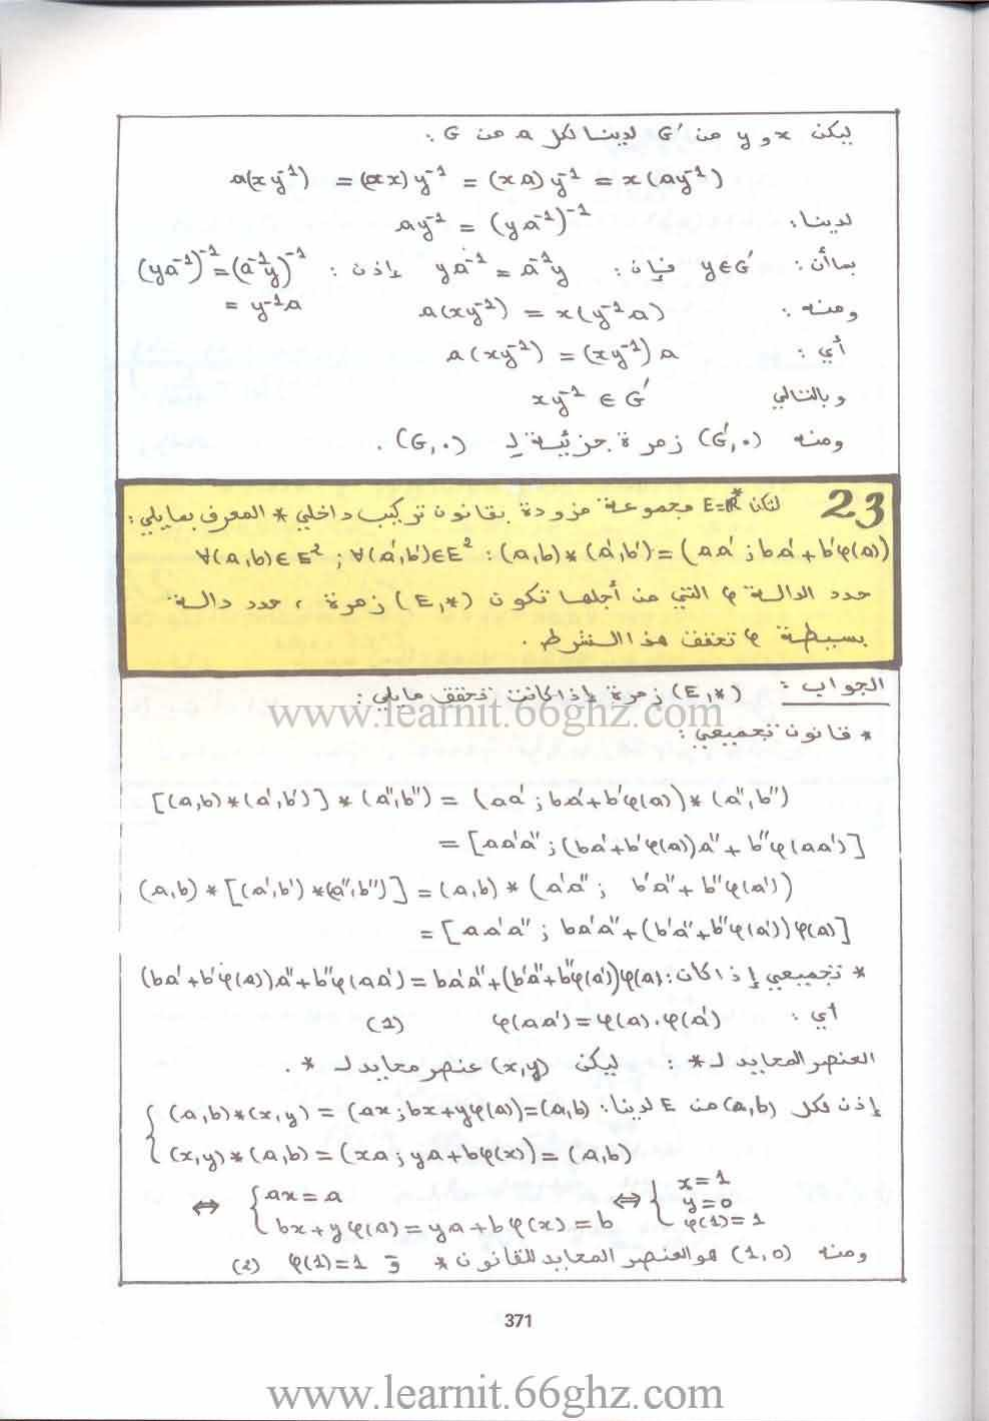 ليكن x و y من G' لدينا لكل a من G :
a(xy⁻¹) = (ax)y⁻¹ = (xa)y⁻¹ = x(ay⁻¹)
لدينا: ay⁻¹ = (ya⁻¹)⁻¹
بما أن : y∈G' فإن : ya⁻¹ = a⁻¹y إذن : (ya⁻¹)⁻¹ = (a⁻¹y)⁻¹
= y⁻¹a
ومنه : a(xy⁻¹) = x(y⁻¹a)
أي : a(xy⁻¹) = (xy⁻¹)a
وبالتالي xy⁻¹ ∈ G'
ومنه (G',.) زمرة جزئية لـ (G,.) .
23 لتكن E=ℝ* مجموعة مزودة بقانون تركيب داخلي * المعرف بمايلي :
∀(a,b)∈E² ; ∀(a',b')∈E² : (a,b)*(a',b') = (aa' ; ba' + b'φ(a))
حدد الدالة φ التي من أجلها تكون (E,*) زمرة ، حدد دالة
بسيطة φ تحقق هذا الشرط .
الجواب : (E,*) زمرة إذا كانت تحقق مايلي :
www.learnit.66ghz.com
* قانون تجميعي :
[(a,b)*(a',b')]*(a",b") = (aa' ; ba'+b'φ(a))*(a",b")
= [aa'a" ; (ba'+b'φ(a))a" + b"φ(aa')]
(a,b)*[(a',b')*(a",b")] = (a,b)*(a'a" ; b'a"+b"φ(a'))
= [aa'a" ; ba'a"+(b'a"+b"φ(a'))φ(a)]
* تجميعي إذا كان : (ba'+b'φ(a))a"+b"φ(aa') = ba'a"+(b'a"+b"φ(a'))φ(a)
أي : φ(aa') = φ(a).φ(a') (1)
العنصر المحايد لـ * : ليكن (x,y) عنصر محايد لـ * .
إذن لكل (a,b) من E لدينا : (a,b)*(x,y) = (ax ; bx+yφ(a)) = (a,b)
(x,y)*(a,b) = (xa ; ya+bφ(x)) = (a,b)
⇔ { ax = a
bx+yφ(a) = ya+bφ(x) = b ⇔ { x=1
y=0
φ(1)=1
ومنه (1,0) هو العنصر المحايد للقانون * و φ(1)=1 (2)
371
www.learnit.66ghz.com